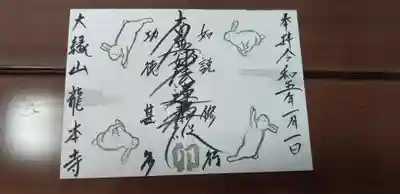 奉拝令和五年一月一日
如説修行
南無妙法蓮華経
功徳甚多
大縁山龍本寺